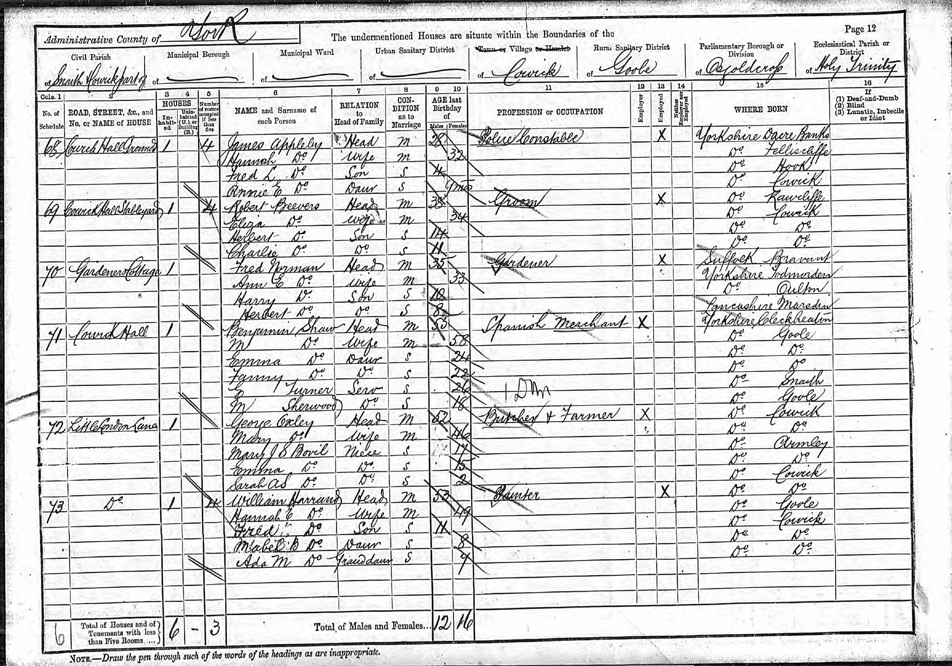 Page 12
Administrative County of York
The undermentioned Houses are situate within the Boundaries of the
Civil Parish
of Snaith & Cowick part of
Municipal Borough
of
Municipal Ward
of
Urban Sanitary District
of
Town or Village or Hamlet
of Cowick
Rural Sanitary District
of Goole
Parliamentary Borough or Division
of Osgoldcross
Ecclesiastical Parish or District
of Holy Trinity
Cols. 1 2 3 4 5 6 7 8 9 10 11 12 13 14 15 16
No. of Schedule
ROAD, STREET, &c., and No. or NAME of HOUSE
HOUSES
Inhabited
Uninhabited (U.), or Building (B.)
Number of rooms occupied if less than five
NAME and Surname of each Person
RELATION to Head of Family
CONDITION as to Marriage
AGE last Birthday of
Males Females
PROFESSION or OCCUPATION
Employer
Employed
Neither Employer nor Employed
WHERE BORN
If (1) Deaf-and-Dumb (2) Blind (3) Lunatic, Imbecile or Idiot
68 1 4 James Appleby Head M 28 Police Constable X Yorkshire Dacre Banks
Hannah Do Wife M 32 Do Felliscliffe
Fred L Do Son 4 Do Hook
Annie E Do Daur S 9mos Do Cowick
69 Cowick Hall Stableyard 1 4 Robert Beevers Head M 38 Groom X Do Rawcliffe
Eliza Do Wife M 34 Do Cowick
Herbert Do Son S 14 Do Do
Charlie Do Do S 11 Do Do
70 Gardeners Cottage 1 Fred Norman Head M 35 Gardener X Suffolk
Ann E Do Wife M 33 Yorkshire Todmorden
Harry Do Son S Do Oulton
Herbert Do Do S 8 Lancashire Marsden
71 Cowick Hall 1 Benjamin Shaw Head M 55 Spanish Merchant X Yorkshire Cleckheaton
M Do Wife M 58 Do Goole
Emma Do Daur S 24 Do Do
Fanny Do Do S 22 Do Do
Turner Serv S 26 Do Snaith
M Sherwood Do S 18 Do Goole
72 Little London Lane 1 George Oxley Head M 62 Butcher & Farmer X Do Cowick
Mary Do Wife M 46 Do Do
Mary J S Bovil Niece S 17 Do Armley
Emma Do Do S 15 Do Do
Sarah A S Do Do S 2 Do Cowick
73 Do 1 4 William Harrand Head M 53 Painter X Do Do
Hannah E Do Wife M 49 Do Goole
Fred Do Son S 11 Do Cowick
Mabel B Do Daur S 8 Do Do
Ada M Do Granddaur S 4 Do Do
6 Total of Houses and of Tenements with less than Five Rooms 6 – 3 Total of Males and Females... 12 16
NOTE.—Draw the pen through such of the words of the headings as are inappropriate.